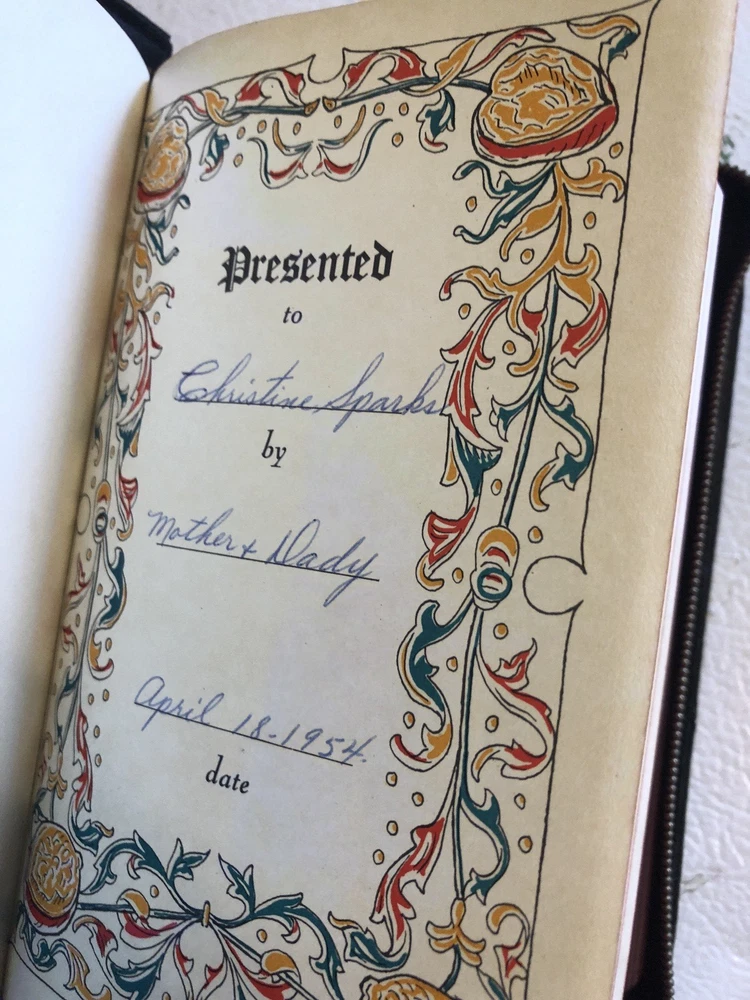 Presented
to
Christine Sparks
by
Mother + Dady
April 18-1954.
date